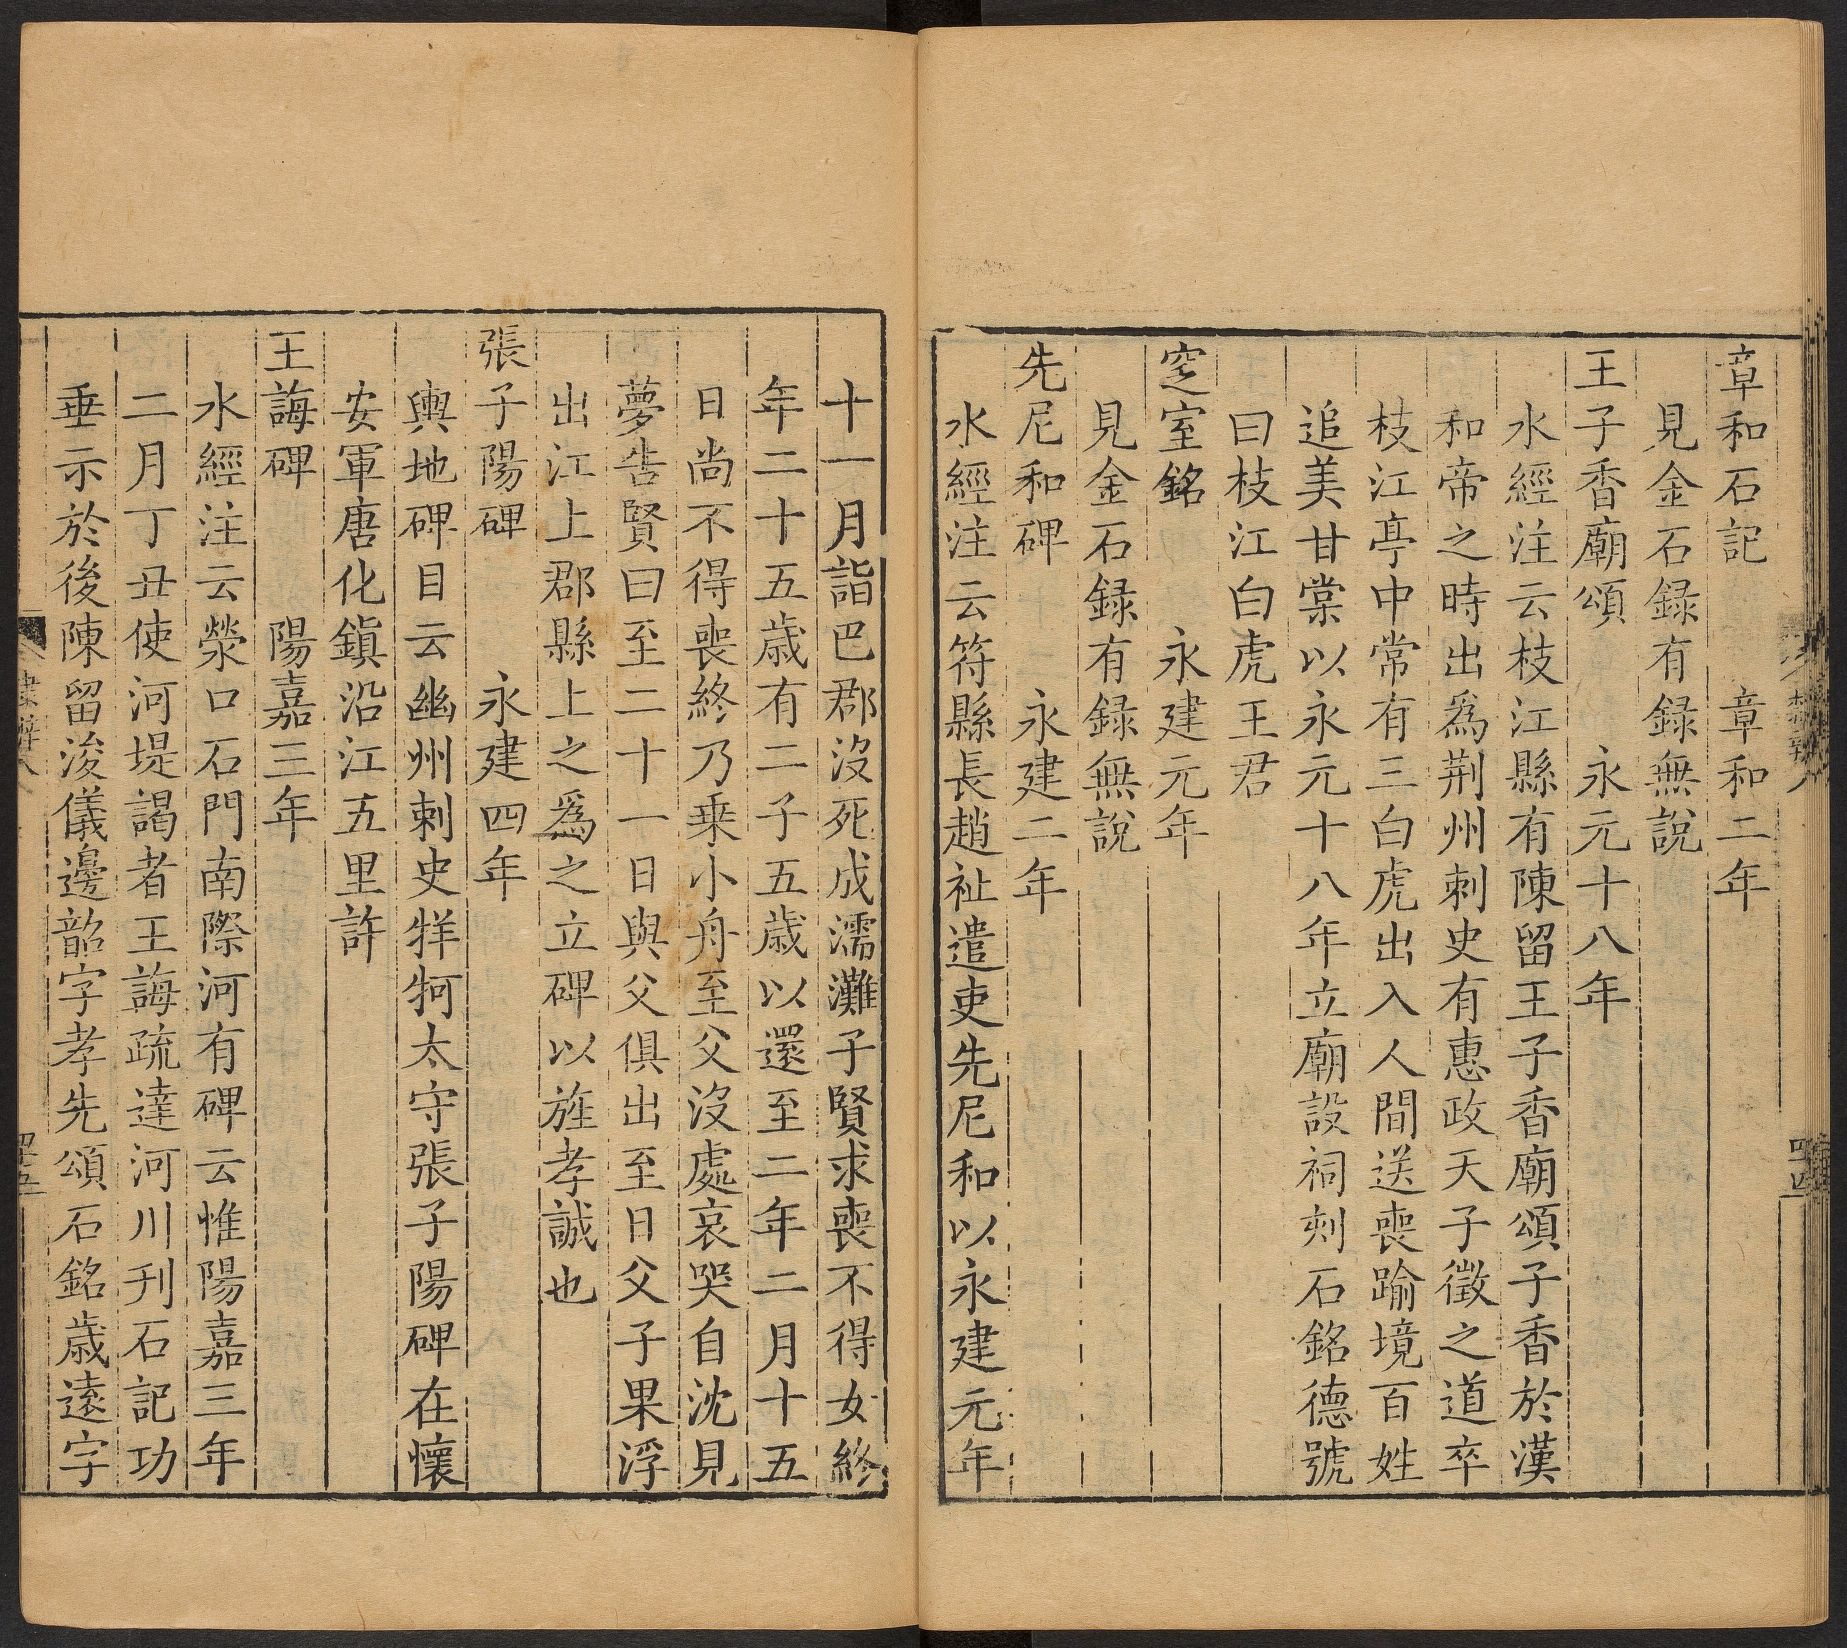 章和石記　　章和二年
見金石録有録無說
王子香廟頌　　永元十八年
水經注云枝江縣有陳留王子香廟頌子香於漢
和帝之時出爲荆州刺史有惠政天子徵之道卒
枝江亭中常有三白虎出入人間送喪踰境百姓
追美甘棠以永元十八年立廟設祠刻石銘德號
曰枝江白虎王君
窆室銘　　永建元年
見金石録有録無說
先尼和碑　　永建二年
水經注云符縣長趙祉遣吏先尼和以永建元年
四四
十一月詣巴郡沒死成濡灘子賢求喪不得女終
年二十五歲有二子五歲以還至二年二月十五
日尚不得喪終乃乗小舟至父沒處哀哭自沈見
夢告賢曰至二十一日與父俱出至日父子果浮
出江上郡縣上之爲之立碑以旌孝誠也
張子陽碑　　永建四年
輿地碑目云幽州刺史牂牁太守張子陽碑在懷
安軍唐化鎮沿江五里許
王誨碑　　陽嘉三年
水經注云滎口石門南際河有碑云惟陽嘉三年
二月丁丑使河堤謁者王誨疏達河川刊石記功
垂示於後陳留浚儀邊韶字孝先頌石銘歲遠字
隸辨八
四五